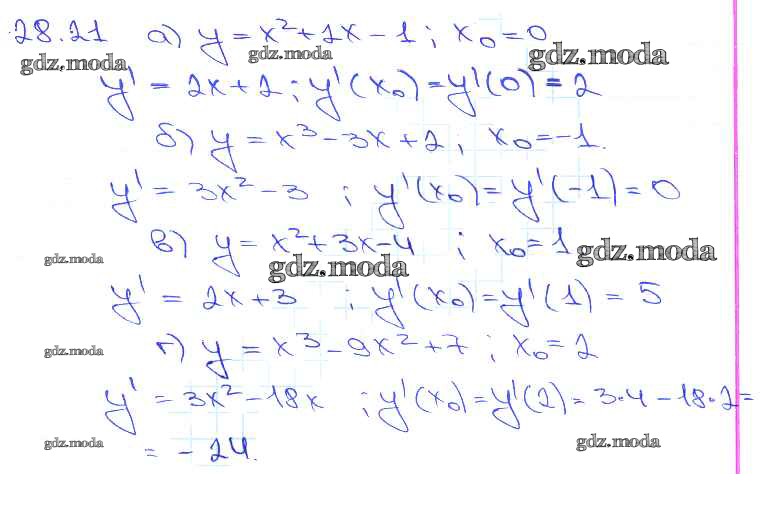 28.21 а) y = x² + 2x − 1; x₀ = 0
gdz.moda gdz.moda gdz.moda
y' = 2x + 2; y'(x₀) = y'(0) = 2
б) y = x³ − 3x + 2; x₀ = −1.
y' = 3x² − 3; y'(x₀) = y'(−1) = 0
в) y = x² + 3x − 4; x₀ = 1
gdz.moda gdz.moda gdz.moda
y' = 2x + 3; y'(x₀) = y'(1) = 5
г) y = x³ − 9x² + 7; x₀ = 2
gdz.moda
y' = 3x² − 18x; y'(x₀) = y'(2) = 3·4 − 18·2 =
= −24.
gdz.moda gdz.moda